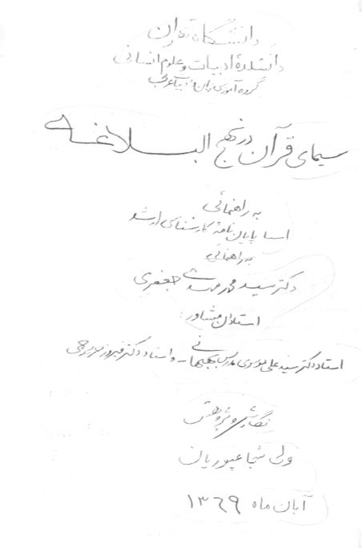 دانشگاه تهران
دانشکدهٔ ادبیات و علوم انسانی
گروه آموزش زبان و ادبیات عرب
سیمای قرآن در نهج البلاغه
به راهنمائی
پایان نامهٔ کارشناسی ارشد
به راهنمائی
دکتر سید محمد مهدی جعفری
استادان مشاور:
استاد دکتر سید علی موسوی بهبهانی و استاد دکتر فیروز
نگارش و پژوهش
ولی شجاعپوریان
آبان ماه ۱۳۶۹